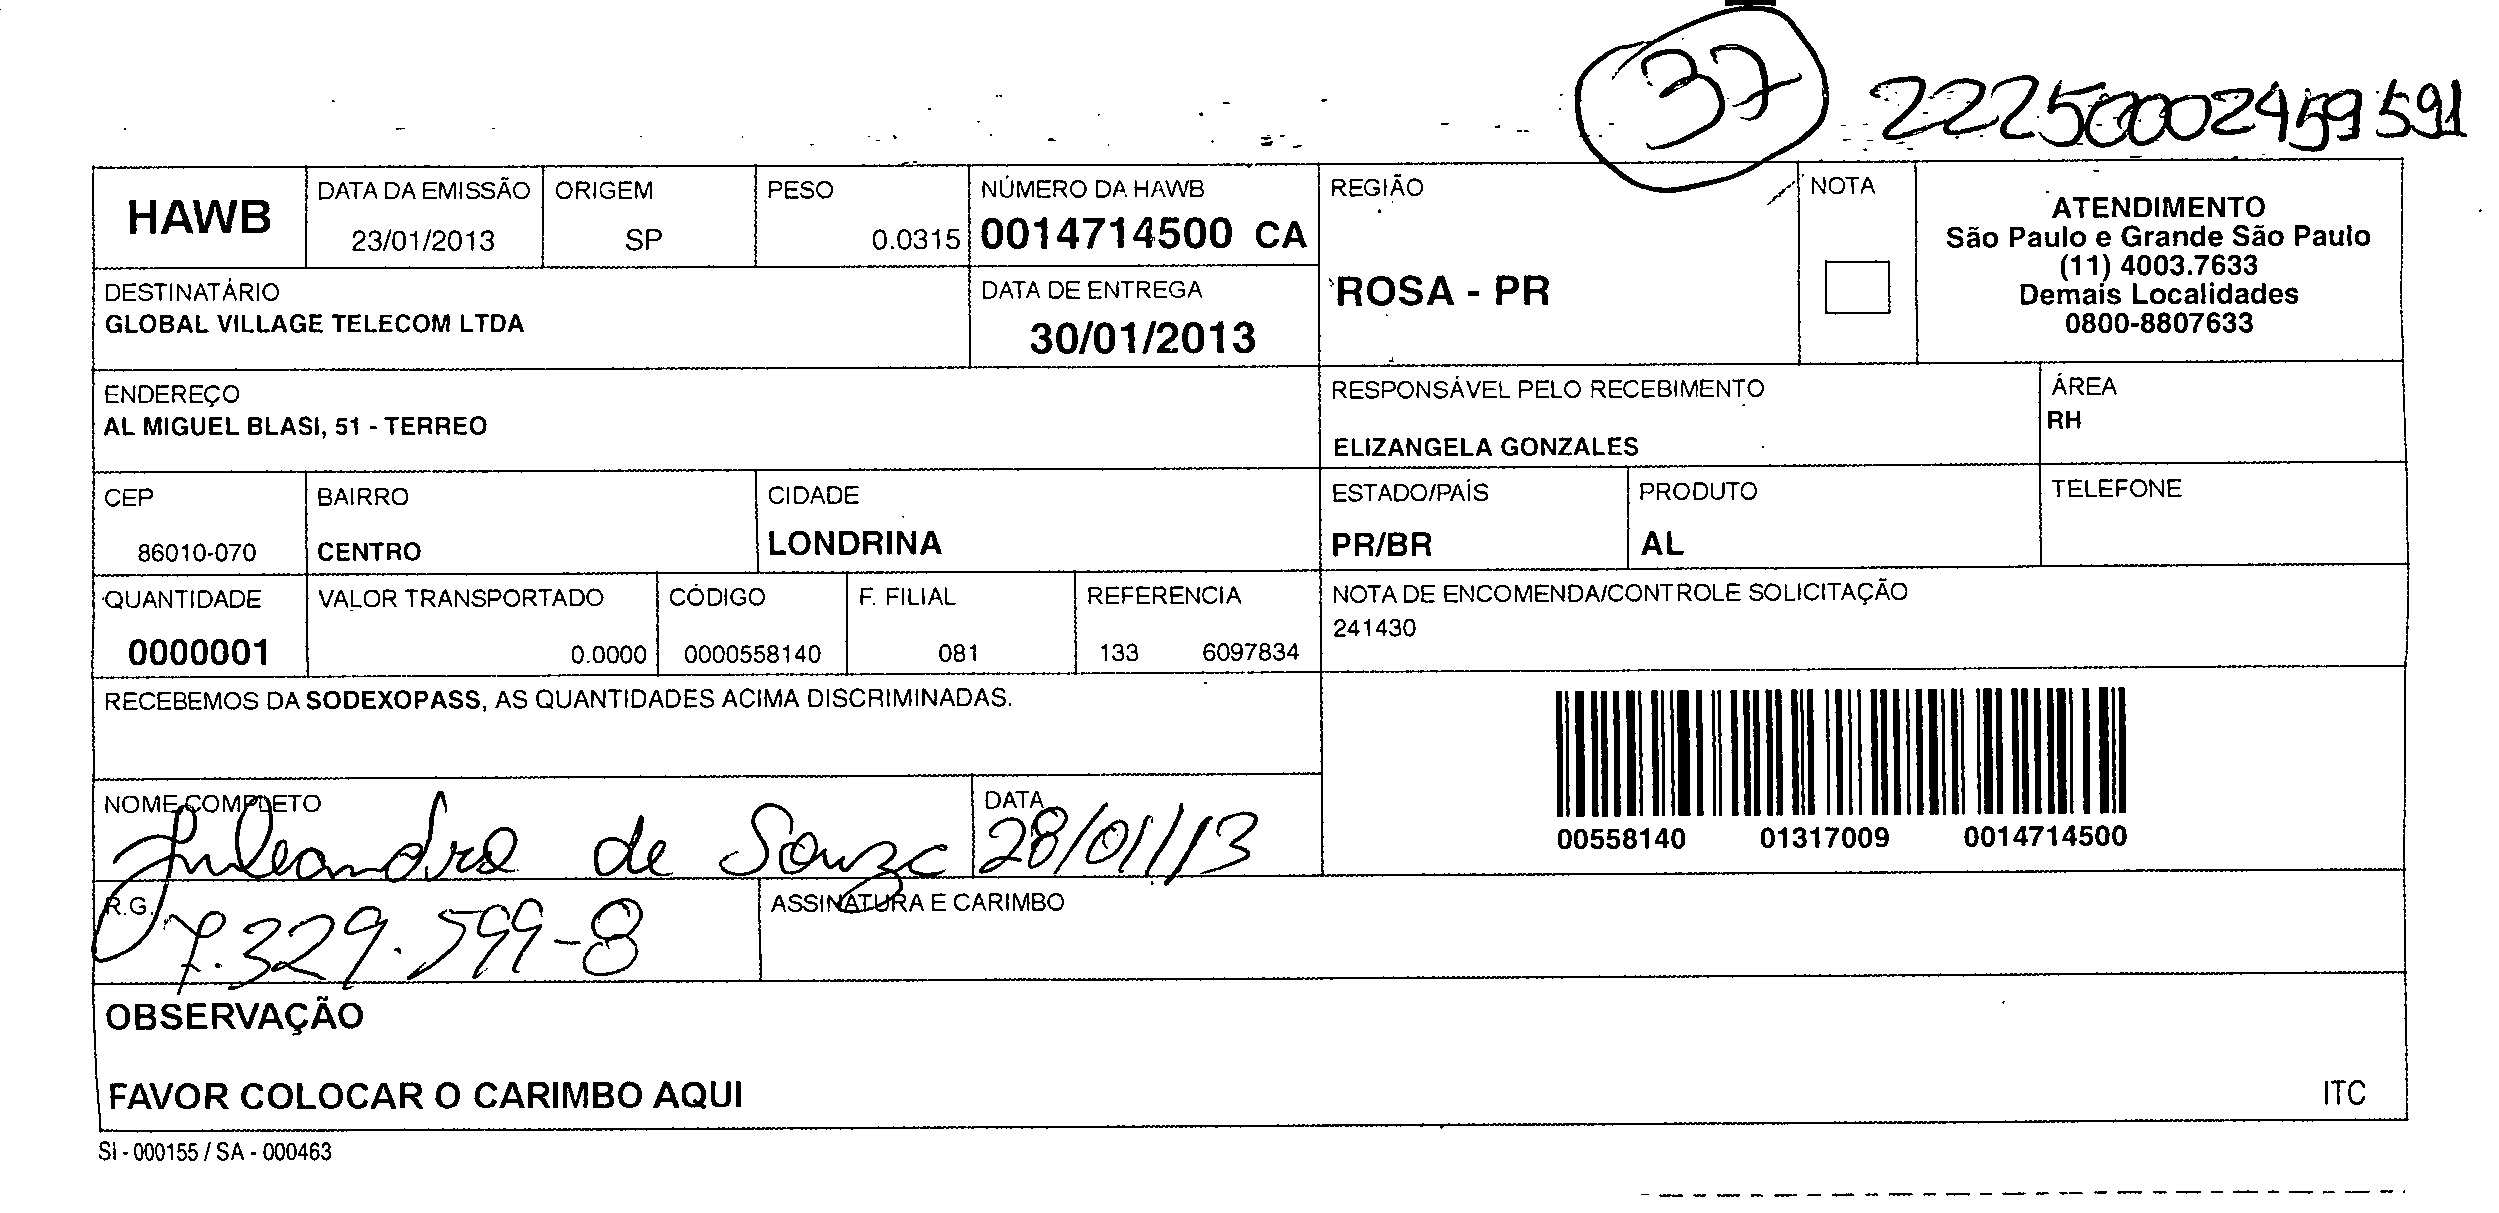 37 22250002459591
HAWB
DATA DA EMISSÃO
23/01/2013
ORIGEM
SP
PESO
0.0315
NÚMERO DA HAWB
0014714500 CA
REGIÃO
ROSA - PR
NOTA
ATENDIMENTO
São Paulo e Grande São Paulo
(11) 4003.7633
Demais Localidades
0800-8807633
DESTINATÁRIO
GLOBAL VILLAGE TELECOM LTDA
DATA DE ENTREGA
30/01/2013
ENDEREÇO
AL MIGUEL BLASI, 51 - TERREO
RESPONSÁVEL PELO RECEBIMENTO
ELIZANGELA GONZALES
ÁREA
RH
CEP
86010-070
BAIRRO
CENTRO
CIDADE
LONDRINA
ESTADO/PAÍS
PR/BR
PRODUTO
AL
TELEFONE
QUANTIDADE
0000001
VALOR TRANSPORTADO
0.0000
CÓDIGO
0000558140
F. FILIAL
081
REFERENCIA
133 6097834
NOTA DE ENCOMENDA/CONTROLE SOLICITAÇÃO
241430
RECEBEMOS DA SODEXOPASS, AS QUANTIDADES ACIMA DISCRIMINADAS.
00558140 01317009 0014714500
NOME COMPLETO
de Souza
DATA
28/01/13
R.G.
7.329.599-8
ASSINATURA E CARIMBO
OBSERVAÇÃO
FAVOR COLOCAR O CARIMBO AQUI
ITC
SI - 000155 / SA - 000463